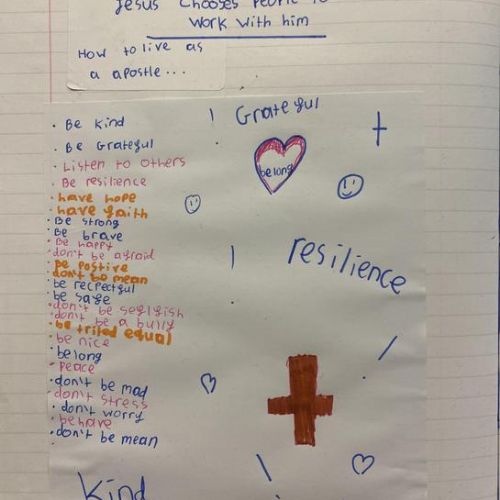 Jesus Chooses People to
work with him
How to live as
a apostle...
Grateful
• Be kind
• Be Grateful
• Listen to others
• Be resilience
• have hope
• have faith
• Be strong
• Be brave
• Be happy
• don't be afraid
• be postive
• don't be mean
• be recpectful
• be safe
• don't be selfish
• don't be a bully
• be trited equal
• be nice
• belong
• Peace
• don't be mad
• don't stress
• don't worry
• behave
• don't be mean
belong
resilience
Kind